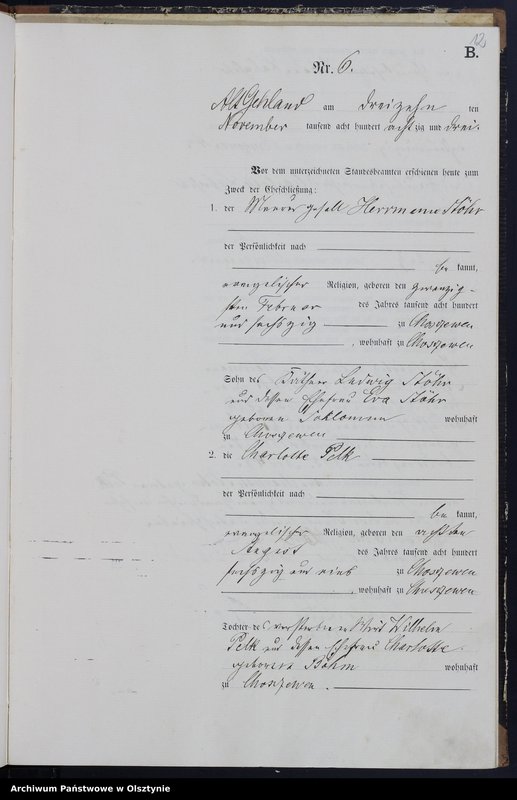 12
B.
Nr. 6.
Alt Gehland am dreizehn ten
November tausend acht hundert acht zig und drei.
Vor dem unterzeichneten Standesbeamten erschienen heute zum
Zweck der Eheschließung:
1. der Maurergesell Herrmann Stöhr
der Persönlichkeit nach
be kannt,
evangelischer Religion, geboren den zwanzig-
sten Februar des Jahres tausend acht hundert
und sechszig zu Choszewen
, wohnhaft zu Choszewen
Sohn des Käthner Ludwig Stöhr
und dessen Ehefrau Eva Stöhr
geborenen wohnhaft
zu Choszewen
2. die Charlotte Pelk
der Persönlichkeit nach
be kannt,
evangelischer Religion, geboren den achten
August des Jahres tausend acht hundert
sechszig und eins zu Choszewen
, wohnhaft zu Choszewen
Tochter des verstorbenen Wirth Wilhelm
Pelk und dessen Ehefrau Charlotte
geborene Böhm wohnhaft
zu Choszewen.
Archiwum Państwowe w Olsztynie